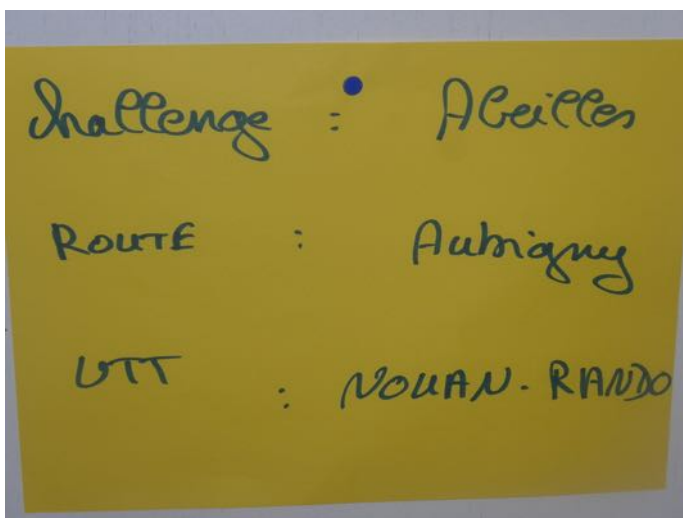 Challenge : Abeilles
ROUTE : Aubigny
VTT : NOUAN-RANDO